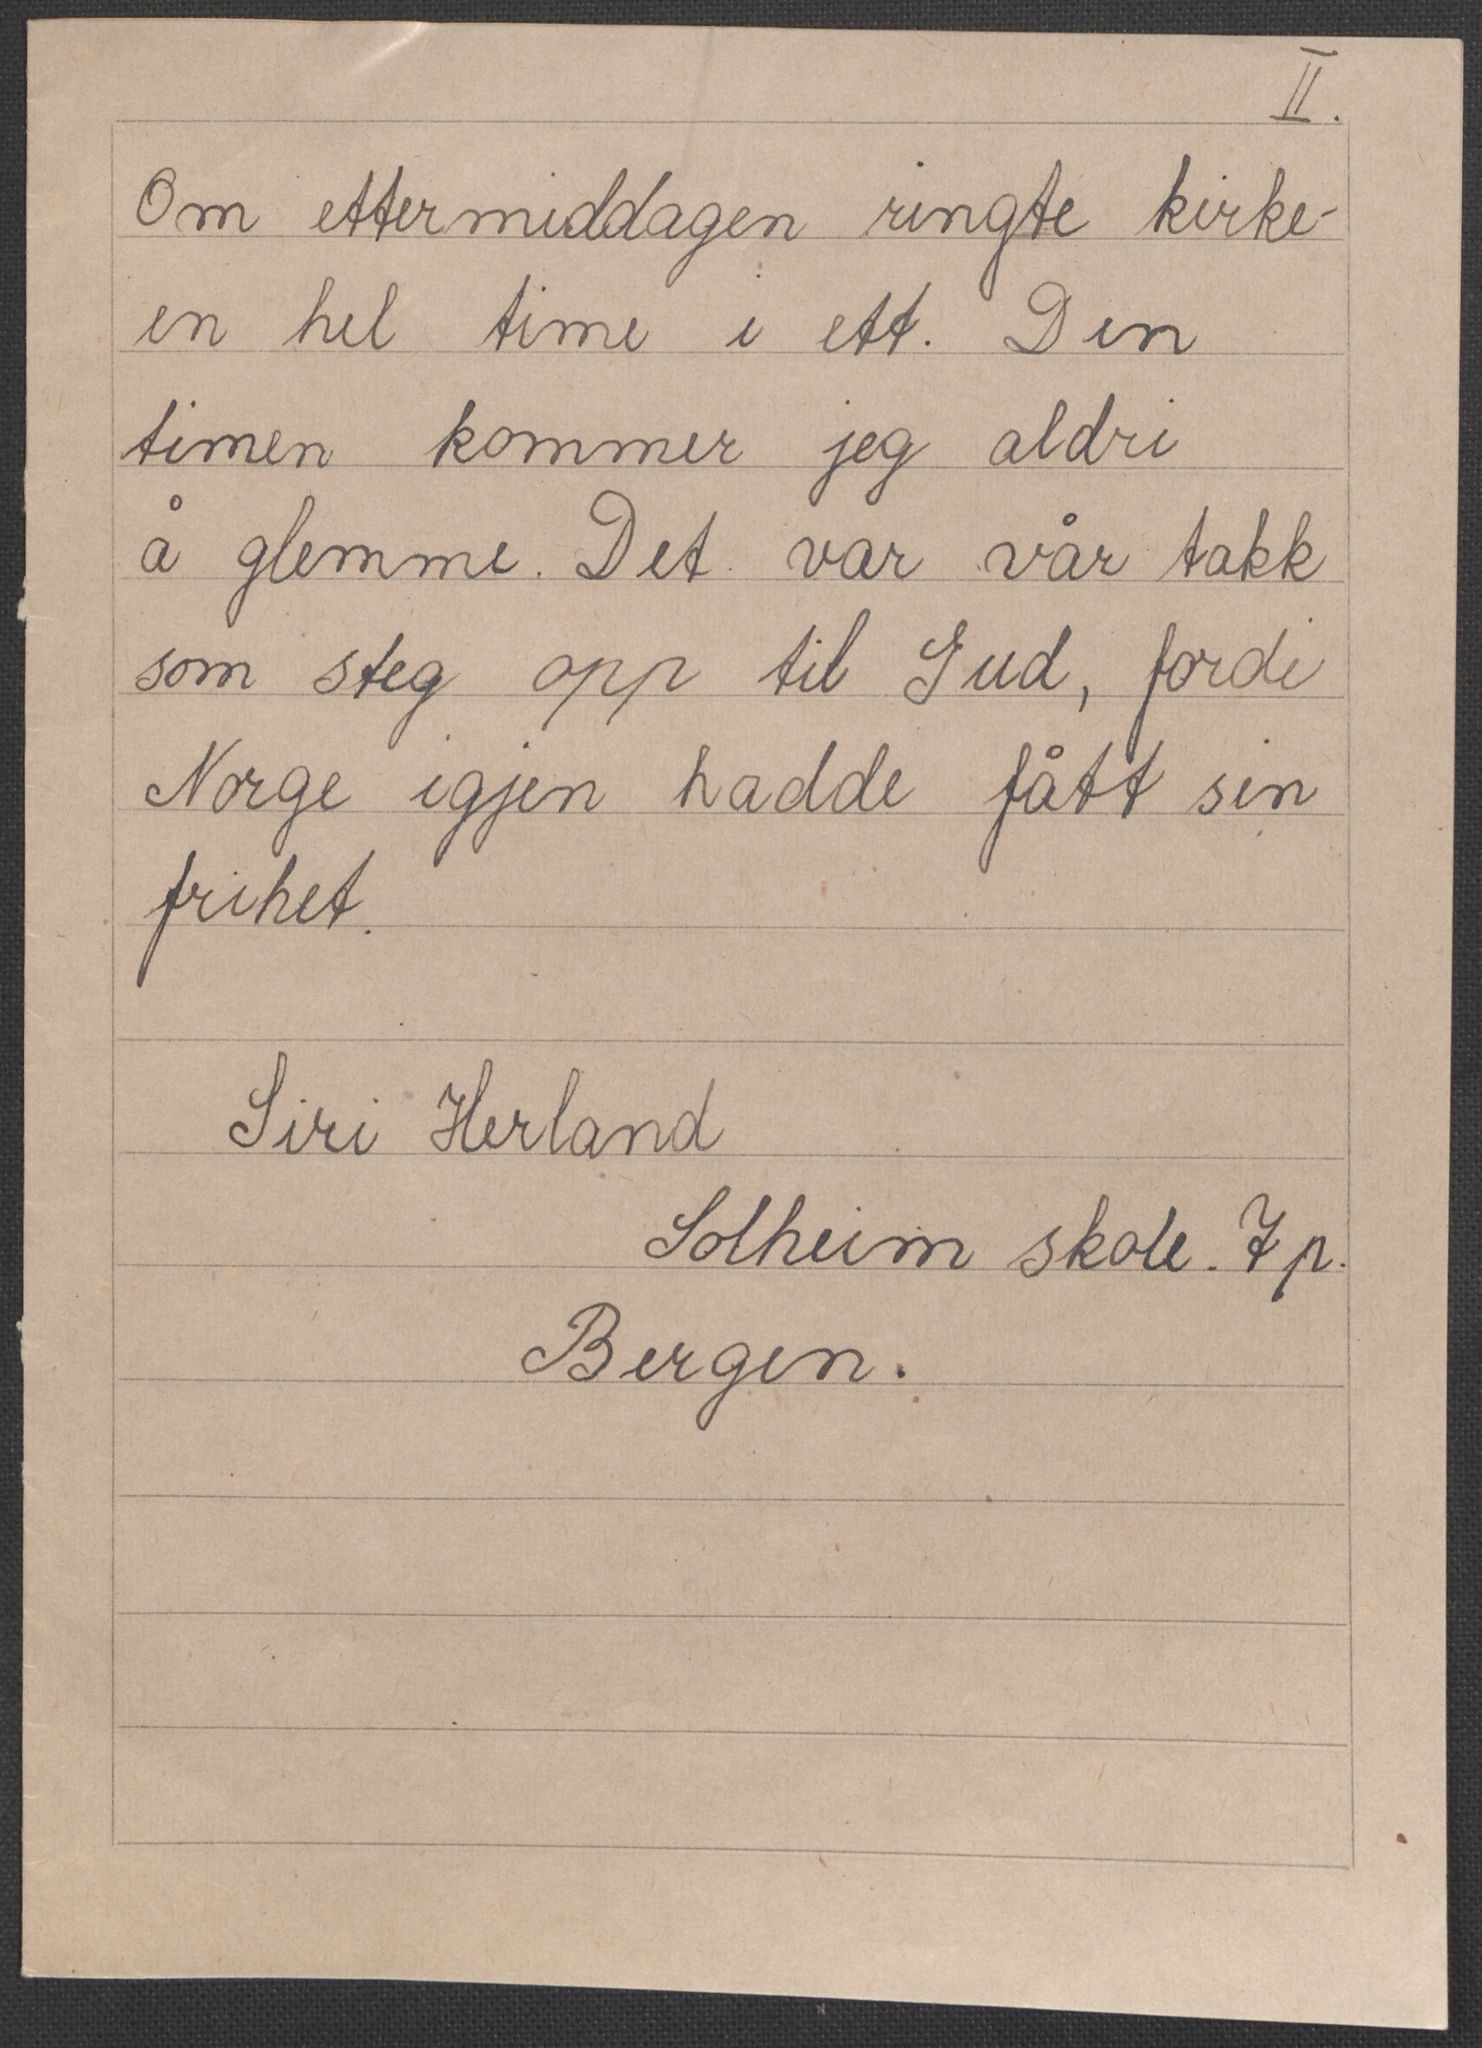 II.
Om ettermiddagen ringte kirke-
en hel time i ett. Den
timen kommer jeg aldri
å glemme. Det var vår takk
som steg opp til Gud, fordi
Norge igjen hadde fått sin
frihet.
Siri Herland
Solheim skole. 7 p.
Bergen.